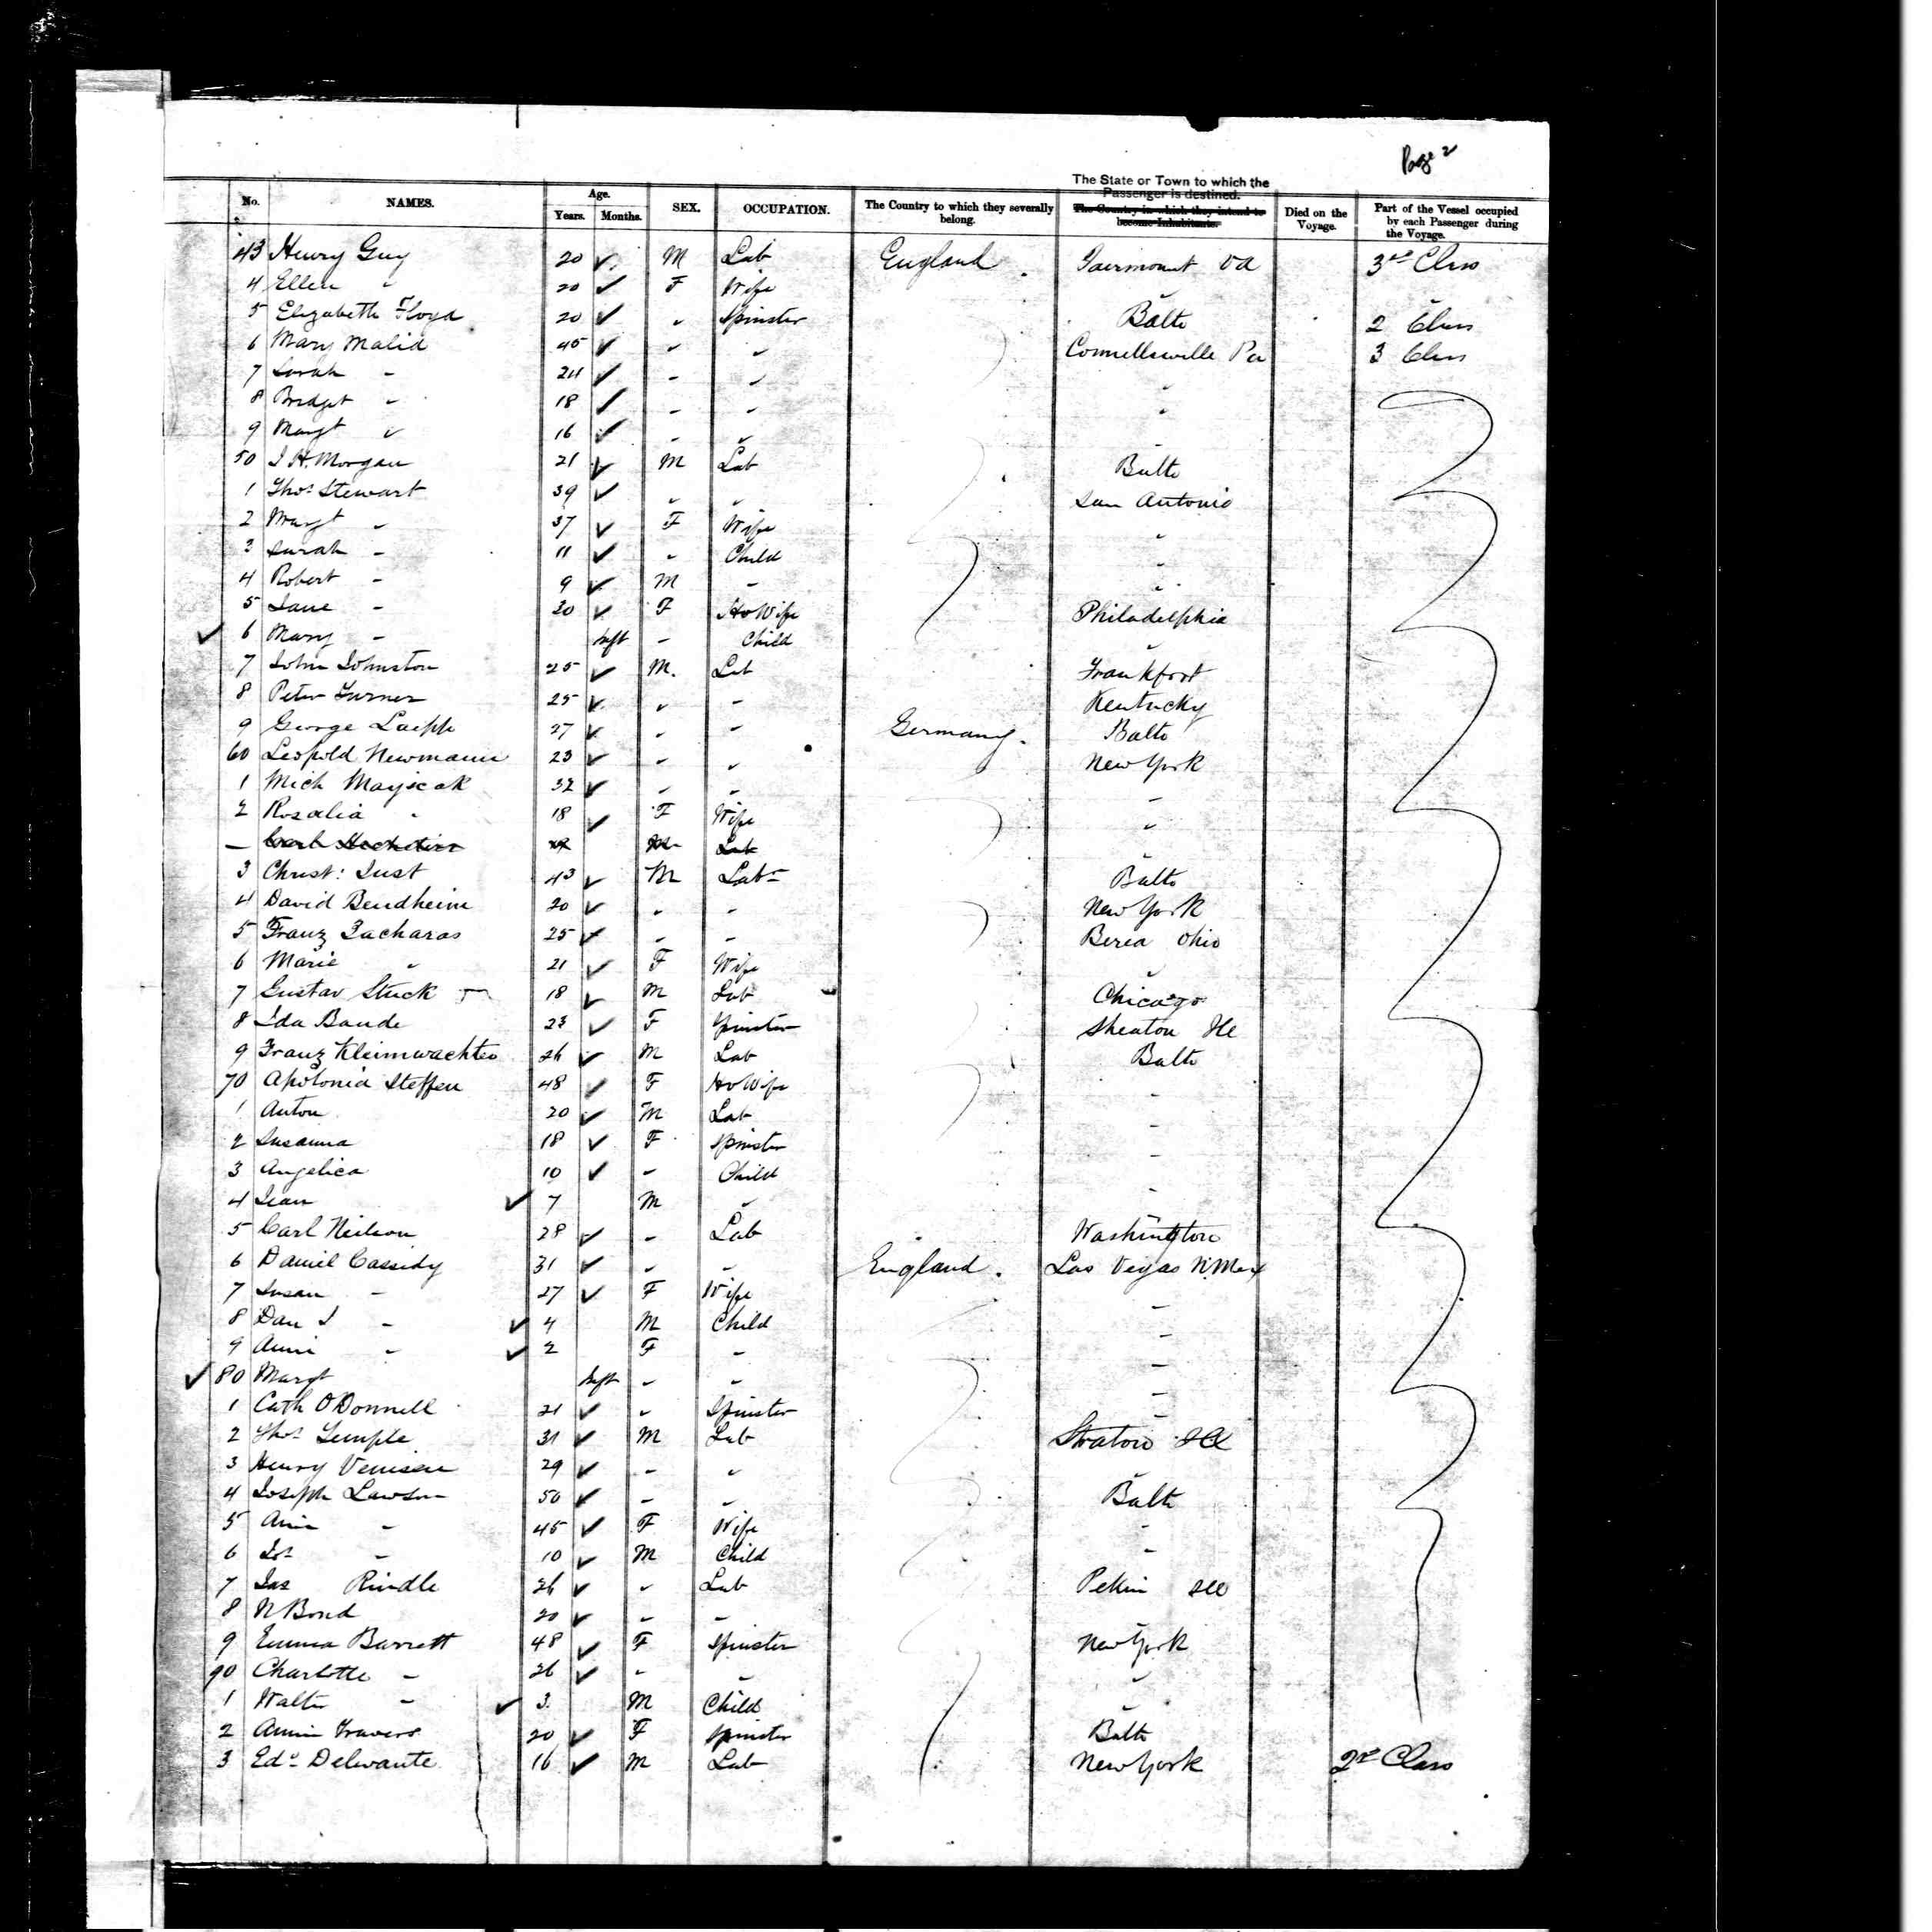 Page 2
No. NAMES. Age. Years. Months. SEX. OCCUPATION. The Country to which they severally belong. The State or Town to which the Passenger is destined. The Country in which they intend to become Inhabitants. Died on the Voyage. Part of the Vessel occupied by each Passenger during the Voyage.
43 Henry Guy 20 M Lab England Va 3rd Class
4 Ellen " 20 F Wife "
5 Elizabeth Floyd 20 " Spinster Balto 2 Class
6 Mary Malia 45 " " Connellsville Pa 3 Class
7 Sarah - 24 - " "
8 Bridget - 18 - - "
9 Margt " 16 - " -
50 J H. Morgan 21 M Lab Balto
1 Thos Stewart 39 " " San Antonio
2 Margt - 37 F Wife "
3 Sarah - 11 " Child "
4 Robert - 9 M - "
5 Jane - 20 F Ho Wife Philadelphia
6 Mary - Inft - Child "
7 John Johnston 25 M. Lab Frankfort
8 Peter Turner 25 " - Kentucky
9 George 27 " - Germany. Balto
60 Leopold Newmann 23 " " New York
1 Mich Mayscak 32 " " -
2 Rosalia " 18 F Wife "
— Carl M Lab "
3 Christ: Just 43 M Labr Balto
4 David Bendheim 20 " - New York
5 Franz Zacharas 25 - - Berea Ohio
6 Marie " 21 F Wife "
7 Gustav Stuck 18 M Lab Chicago
8 Ida Bande 23 F Spinster Sheaton Ile
9 Franz Kleinwachter 26 M Lab Balto
70 Apolonia Steffen 48 F Ho Wife -
1 Anton 20 M Lab -
2 Susanna 18 F Spinster -
3 Angelica 10 - Child -
4 Jean 7 M " -
5 Carl Neilson 28 - Lab Washington
6 Daniel Cassidy 31 " - England. Las Vegas N.Mex
7 Susan - 27 F Wife -
8 Dan J - 4 M Child -
9 Annie - 2 F - -
80 Margt Inft - - -
1 Cath O'Donnell 21 " Spinster -
2 Thos Temple 31 M Lab Straton Ill
3 Henry Venison 29 - " "
4 Joseph Lawson 50 - - Balto
5 Ann - 45 F Wife -
6 Jos - 10 M Child -
7 Jas Rindle 26 " Lab Pekin Ill
8 N Bond 20 - -
9 Emma Barrett 48 F Spinster New York
90 Charlotte - 26 - - "
1 Walter - 3 M Child "
2 Annie Travers 20 F Spinster Balto
3 Edd Delwante 16 M Lab New York 2nd Class